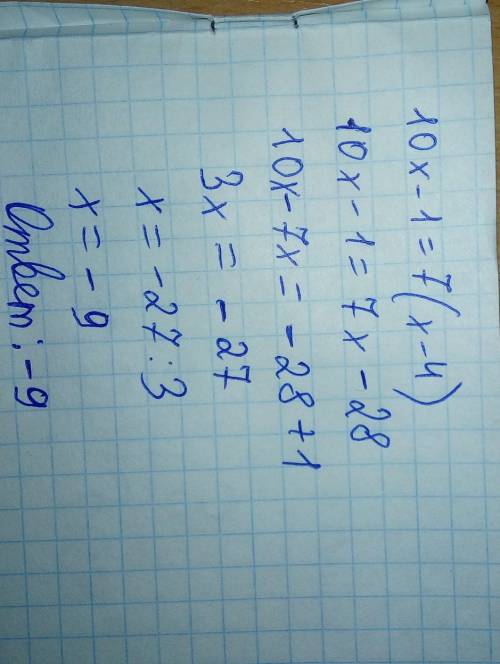 10x - 1 = 7(x - 4)
10x - 1 = 7x - 28
10x - 7x = - 28 + 1
3x = - 27
x = - 27 : 3
x = - 9
Ответ: - 9